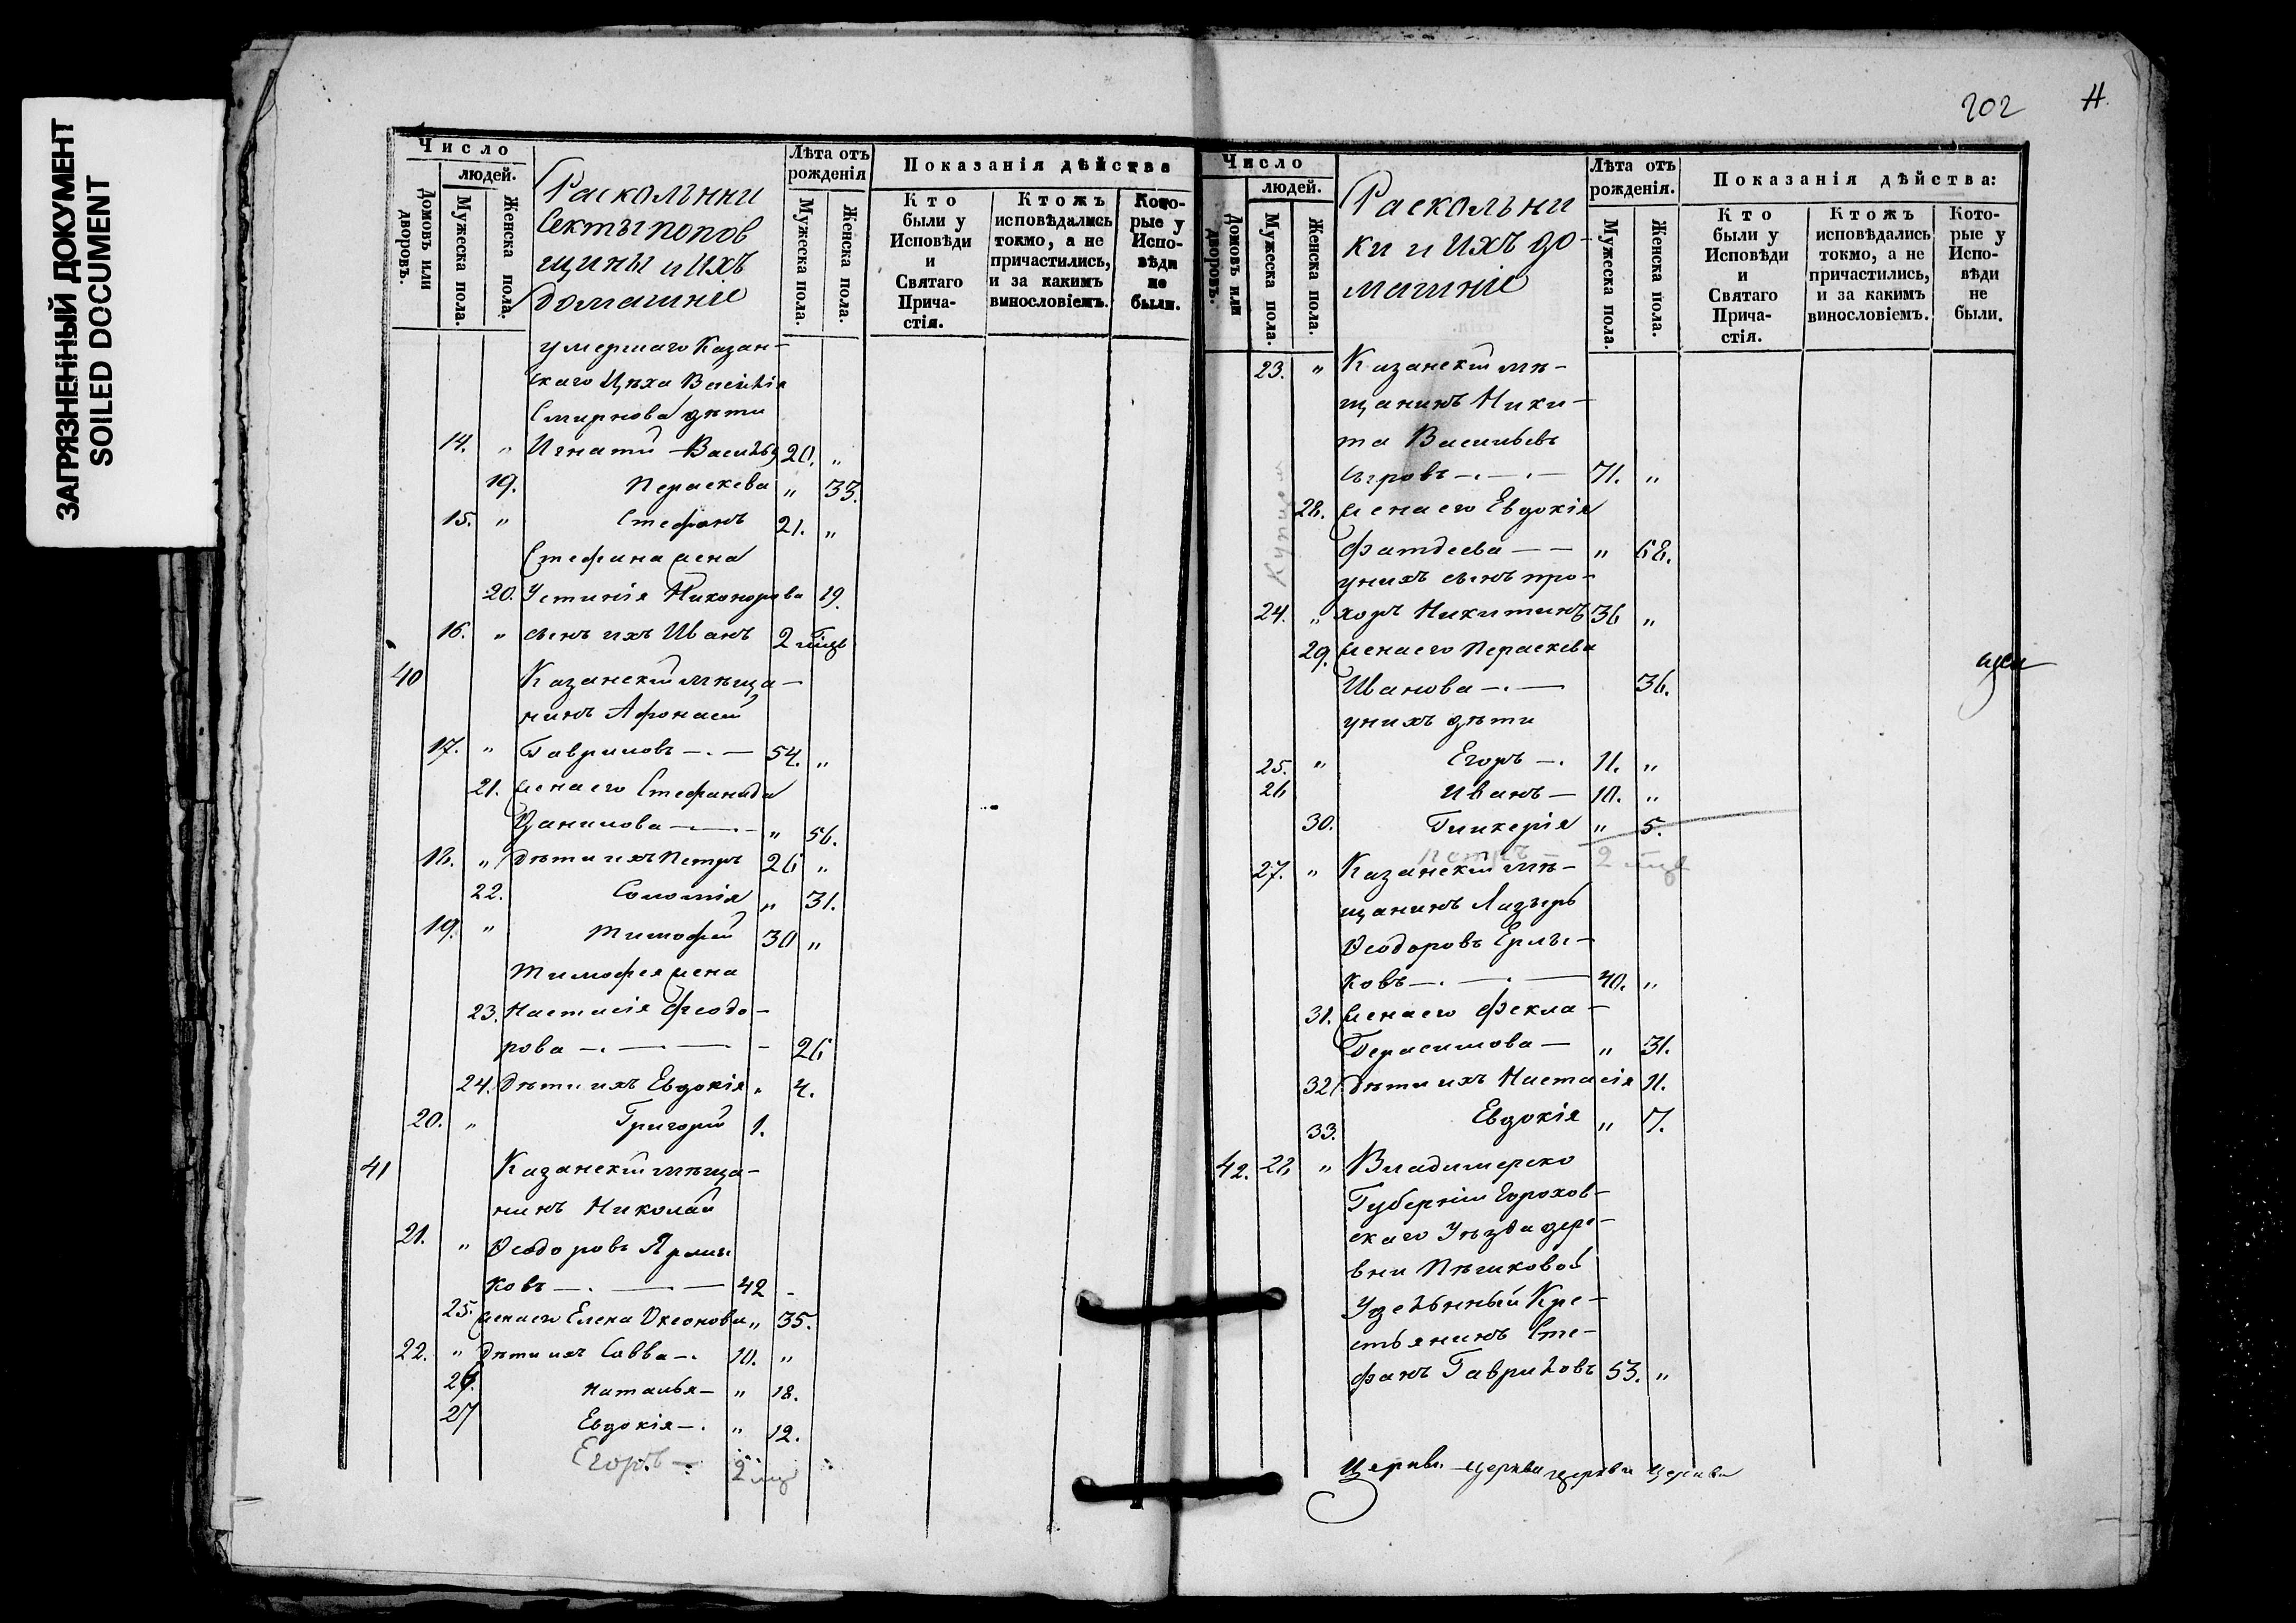 ЗАГРЯЗНЕННЫЙ ДОКУМЕНТ
SOILED DOCUMENT
Число
людей.
Домовъ или дворовъ.
Мужеска пола.
Женска пола.
Раскольнки
Секты попов
щины и ихъ
домашніе
Лѣта отъ рожденія
Мужеска пола.
Женска пола.
Показанія дѣйства
Кто были у Исповѣди и Святаго Прича-стія.
Ктожъ исповѣдались токмо, а не причастились, и за какимъ винословіемъ.
Кото-рые у Испо-вѣди не были.
умершаго Казан-
скаго Цѣха Василія
Смирнова дѣти
14. " Игнатій Васильв 20. "
19. Параскева " 33.
15. " Стефанъ 21. "
Стефана жена
20. Устинія Никонорова 19.
16. " сынъ ихъ Иванъ 2 мцв
40 Казанскій мѣща-
нинъ Афонасій
17. " Гавриловъ 54. "
21. жена его Стефанида
Данилова " 56.
18. " Дѣти ихъ Петръ 26 "
22. Соломія " 31.
19. " Тимофей 30 "
Тимофея жена
23. Настасія Феодо-
рова - 26
24. Дѣти ихъ Евдокія " 4.
20. " Григорій 1.
41 Казанскій мѣща-
нинъ Николай
21. " Ѳеодоровъ Ярмы
ковъ 42 -
25. жена его Елена " 35.
22. " Дѣти ихъ Савва 10. "
26. Наталья " 18.
27 Евдокія " 12.
Егоръ 2 мц
202
Число
людей.
Домовъ или дворовъ.
Мужеска пола.
Женска пола.
Раскольни
ки и ихъ до-
машніе
Лѣта отъ рожденія.
Мужеска пола.
Женска пола.
Показанія дѣйства:
Кто были у Исповѣди и Святаго Прича-стія.
Ктожъ исповѣдались токмо, а не причастились, и за какимъ винословіемъ.
Кото-рые у Испо-вѣди не были.
23. " Казанскій мѣ-
щанинъ Ники-
та Васильевъ
71. "
28. жена его Евдокія
Фатдеева " 68.
у нихъ сынъ про-
24. " хоръ Никитинъ 36 "
29. жена его Параскева
Иванова 36.
у нихъ дѣти
25. " Егоръ 11. "
26 Иванъ 10. "
30. Гликерія " 5.
Петръ 2 мцв
27. " Казанскій мѣ-
щанинъ Лазарь
Ѳеодоровъ Ермы-
ковъ 40. "
31. жена его Фекла
Герасимова " 31.
32 Дѣти ихъ Настасія 11.
33. Евдокія " 7.
42. 28 " Владимерско
Губерніи Горохов-
скаго Уѣзда дере-
вни Пѣшковой
Удельнный Кре-
стьянинъ Сте-
фанъ Гавриловъ 53. "
Церкви церкви церкви церкви